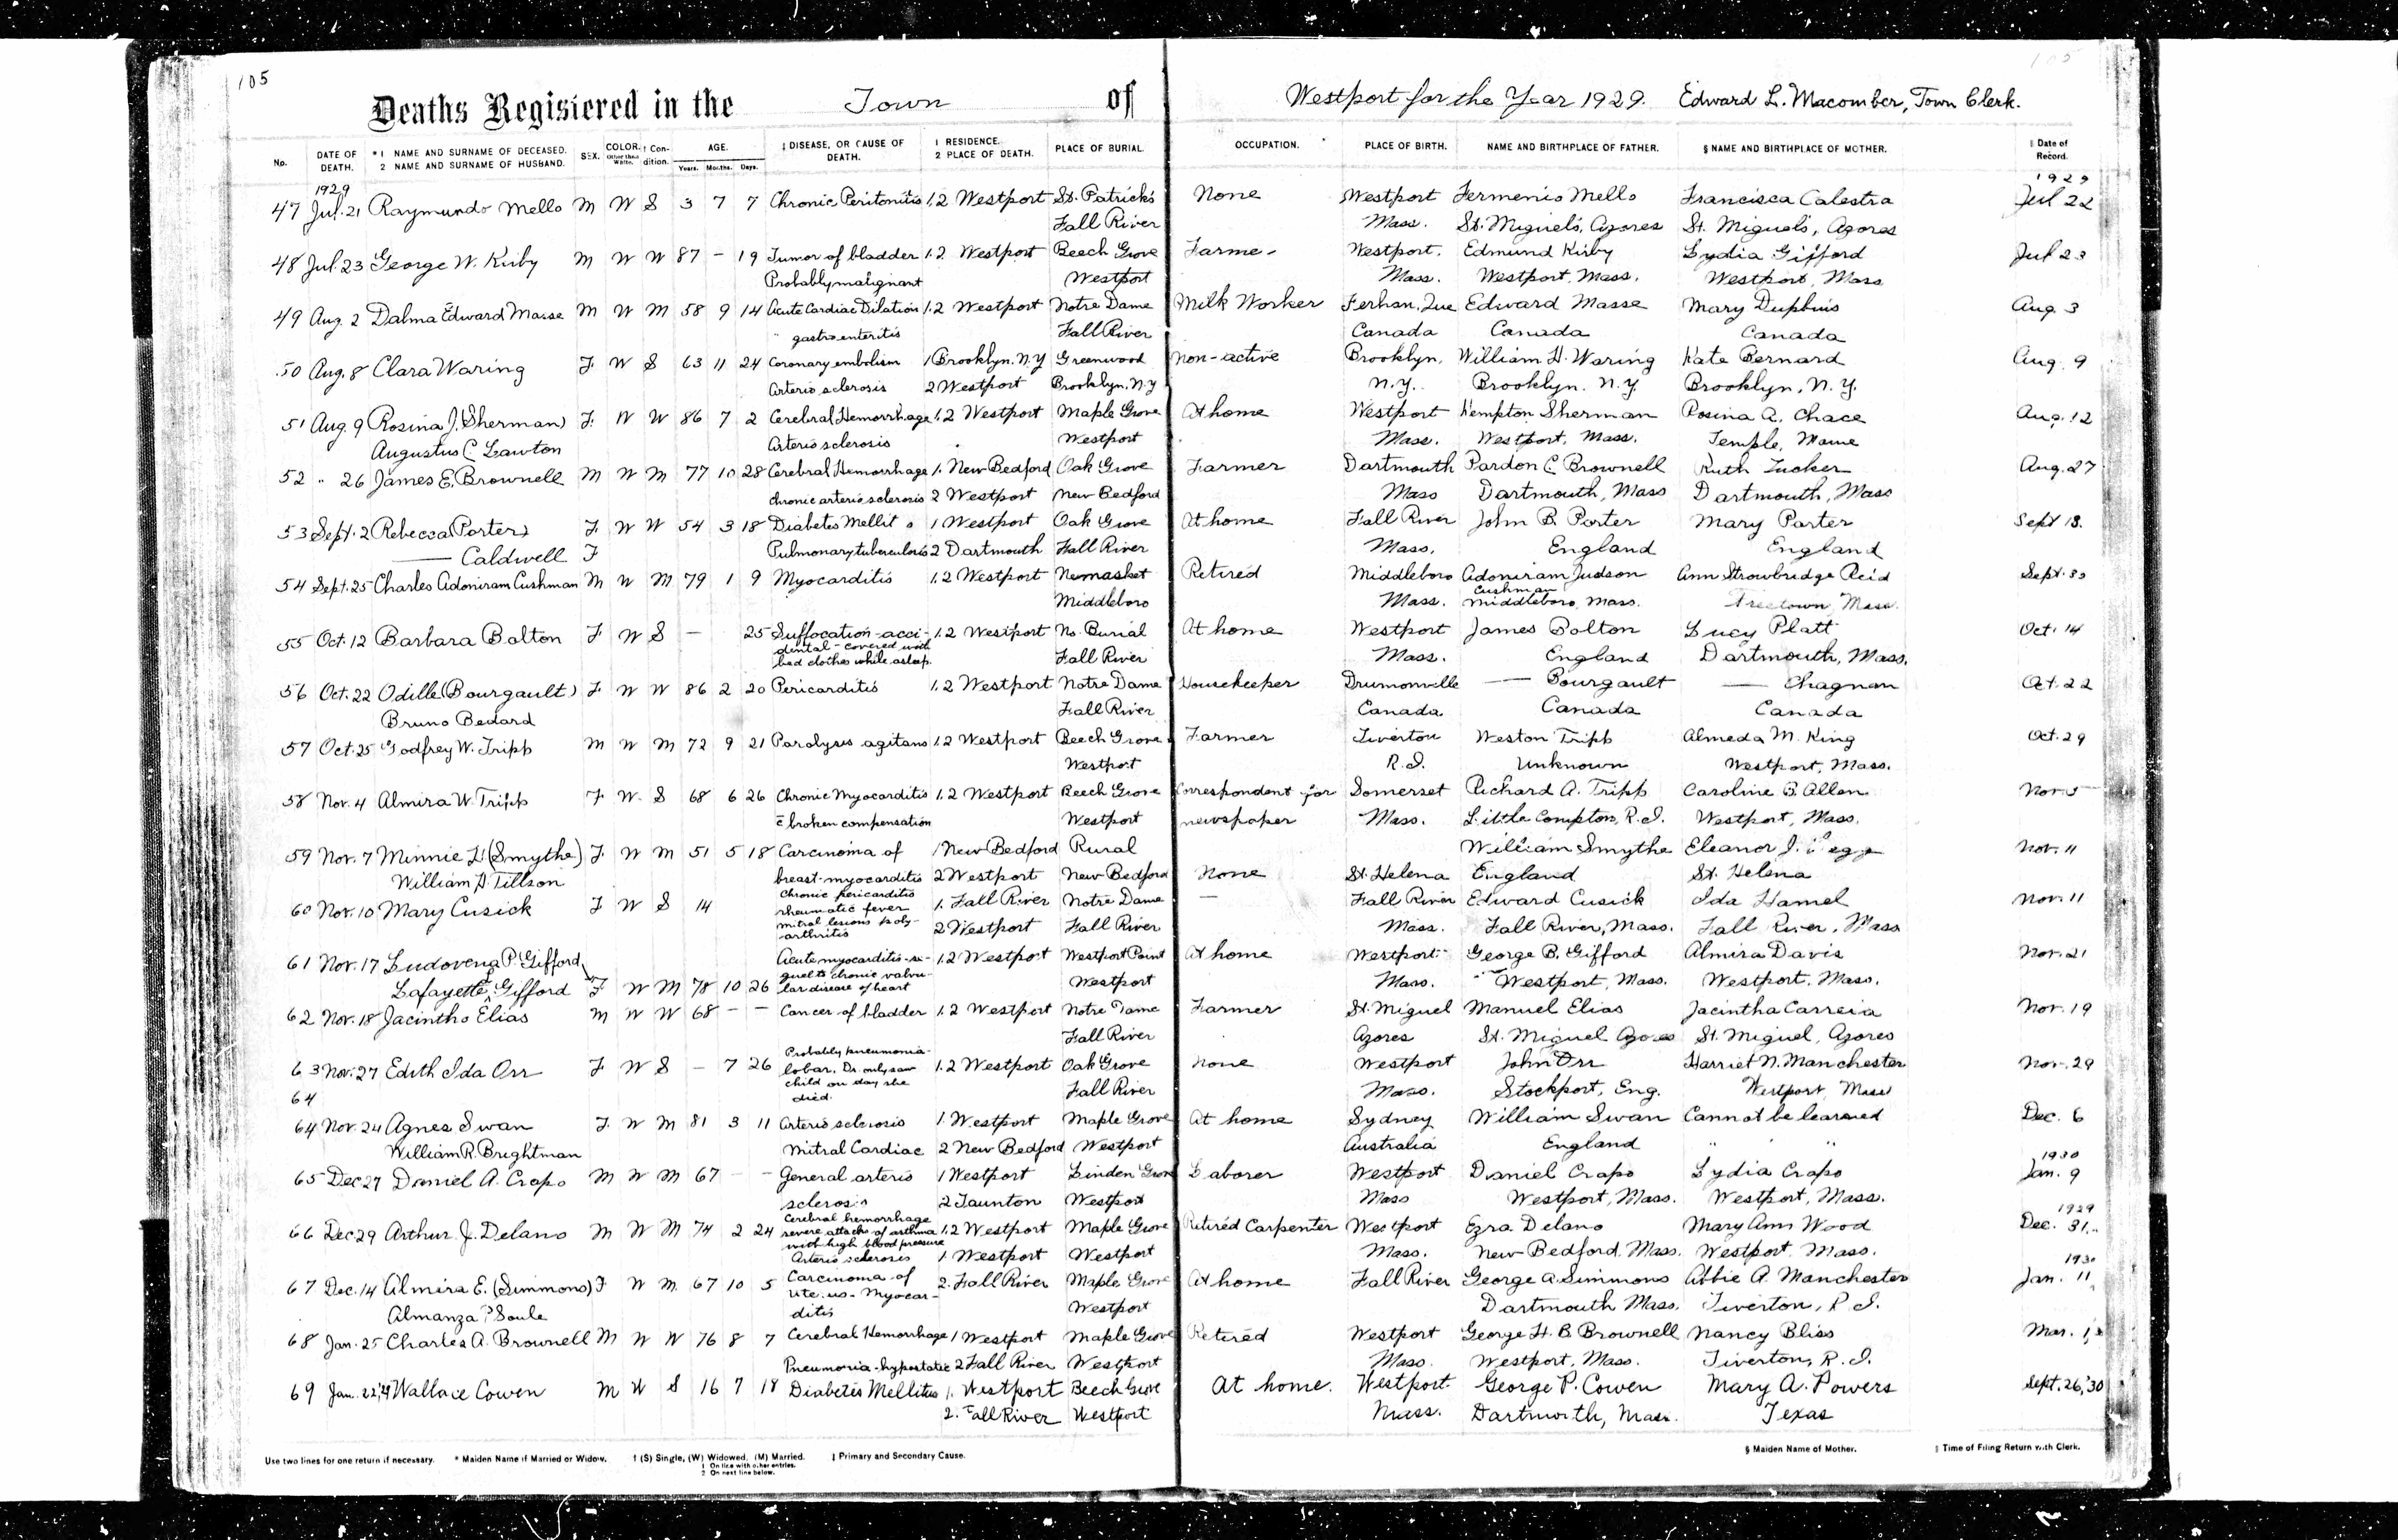 105
105
Deaths Registered in the Town of Westport for the Year 1929. Edward L. Macomber, Town Clerk.
No. DATE OF DEATH. * 1 NAME AND SURNAME OF DECEASED. 2 NAME AND SURNAME OF HUSBAND. SEX. COLOR. Other than White. † Condition. AGE. Years. Months. Days. ‡ DISEASE, OR CAUSE OF DEATH. 1 RESIDENCE. 2 PLACE OF DEATH. PLACE OF BURIAL. OCCUPATION. PLACE OF BIRTH. NAME AND BIRTHPLACE OF FATHER. § NAME AND BIRTHPLACE OF MOTHER. ‖ Date of Record.
1929 1929
47 Jul. 21 Raymundo Mello M W S 3 7 7 Chronic Peritonitis 1.2 Westport St. Patrick's None Westport Fermenio Mello Francisca Calestra Jul 22
Fall River Mass. St. Miguels, Azores St. Miguels, Azores
48 Jul. 23 George W. Kirby M W W 87 - 19 Tumor of bladder 1.2 Westport Beech Grove Farme- Westport. Edmund Kirby Lydia Gifford Jul 23
Probably malignant Westport Mass. Westport, Mass. Westport, Mass
49 Aug. 2 Dalma Edward Masse M W M 58 9 14 Acute Cardiac Dilation 1.2 Westport Notre Dame Milk Worker Ferhan, Que Edward Masse Mary Dupbuis Aug. 3
gastro enteritis Fall River Canada Canada Canada
50 Aug. 8 Clara Waring F. W S 63 11 24 Coronary embolism 1 Brooklyn, N.Y Greenwood non-active Brooklyn, William H. Waring Kate Bernard Aug. 9
Arterio sclerosis 2 Westport Brooklyn, N.Y N.Y. Brooklyn. N.Y. Brooklyn, N.Y.
51 Aug. 9 Rosina J. (Sherman) F. W W 86 7 2 Cerebral Hemorrhage 1.2 Westport Maple Grove At home Westport Kempton Sherman Rosina A. Chace Aug. 12
Augustus C. Lawton Arterio sclerosis Westport Mass. Westport, Mass. Temple, Maine
52 " 26 James E. Brownell M W M 77 10 28 Cerebral Hemorrhage 1. New Bedford Oak Grove Farmer Dartmouth Pardon C. Brownell Ruth Tucker Aug. 27
chronic arterio sclerosis 2 Westport New Bedford Mass Dartmouth, Mass Dartmouth, Mass
53 Sept. 2 Rebecca (Porter) F. W W 54 3 18 Diabetes Mellit s 1 Westport Oak Grove At home Fall River John B. Porter Mary Porter Sept 18.
—— Caldwell F Pulmonary tuberculosis 2 Dartmouth Fall River Mass. England England
54 Sept. 25 Charles Adoniram Cushman M W M 79 1 9 Myocarditis 1.2 Westport Nemasket Retired Middleboro Adoniram Judson Ann Strowbridge Reid Sept. 30
Cushman
Middleboro Mass. Middleboro, Mass. Freetown, Mass.
55 Oct. 12 Barbara Bolton F W S - 25 Suffocation-acci- 1.2 Westport No. Burial At home Westport James Bolton Lucy Platt Oct. 14
dental - covered with
bed clothes while asleep. Fall River Mass. England Dartmouth, Mass.
56 Oct. 22 Odille (Bourgault) F W W 86 2 20 Pericarditis 1.2 Westport Notre Dame Housekeeper Drumonville —— Bourgault —— Chagnan Oct. 22
Bruno Bedard Fall River Canada Canada Canada
57 Oct. 25 Godfrey W. Tripp M W M 72 9 21 Paralysis agitans 1.2 Westport Beech Grove Farmer Tiverton Weston Tripp Almeda M. King Oct. 29
Westport R.I. Unknown Westport, Mass.
58 Nov. 4 Almira W. Tripp F W. S 68 6 26 Chronic Myocarditis 1.2 Westport Beech Grove Correspondent for Somerset Richard A. Tripp Caroline B. Allen Nov. 5
c̄ broken compensation Westport newspaper Mass. Little Compton, R.I. Westport, Mass.
59 Nov. 7 Minnie L. (Smythe) F. W M 51 5 18 Carcinoma of 1 New Bedford Rural William Smythe Eleanor J. Nov. 11
William H. Tillson breast-myocarditis 2 Westport New Bedford None St. Helena England St. Helena
60 Nov. 10 Mary Cusick F W S 14 Chronic pericarditis 1. Fall River Notre Dame — Fall River Edward Cusick Ida Hamel Nov. 11
rheumatic fever
mitral lesions poly-
arthritis 2 Westport Fall River Mass. Fall River, Mass. Fall River, Mass
61 Nov. 17 Ludovena P. Gifford Acute myocarditis-se- 1.2 Westport Westport Point At home Westport George B. Gifford Almira Davis Nov. 21
quel to chronic valvu-
Lafayette Gifford F W M 78 10 26 lar disease of heart Westport Mass. Westport, Mass. Westport, Mass.
62 Nov. 18 Jacintho Elias M W W 68 - - Cancer of bladder 1.2 Westport Notre Dame Farmer St. Miguel Manuel Elias Jacintha Carreia Nov. 19
Fall River Azores St. Miguel Azores St. Miguel, Azores
63 Nov. 27 Edith Ida Orr F W S - 7 26 Probably pneumonia- 1.2 Westport Oak Grove None Westport John Orr Harriet N. Manchester Nov. 29
lobar. Dr. only saw
child on day she
64 died. Fall River Mass. Stockport, Eng. Westport, Mass
64 Nov. 24 Agnes Swan F. W M 81 3 11 Arterio sclerosis 1. Westport Maple Grove At home Sydney William Swan Cannot be learned Dec. 6
William R. Brightman Mitral Cardiac 2 New Bedford Westport Australia England " " "
1930
65 Dec 27 Daniel A. Crapo M W M 67 - - General arterio 1 Westport Linden Grove Laborer Westport Daniel Crapo Lydia Crapo Jan. 9
sclerosis 2 Taunton Westport Mass Westport, Mass. Westport, Mass.
1929
66 Dec 29 Arthur J. Delano M W M 74 2 24 Cerebral hemorrhage 1.2 Westport Maple Grove Retired Carpenter Westport Ezra Delano Mary Ann Wood Dec. 31.
severe attacks of asthma
with high blood pressure
Arterio sclerosis 1 Westport Westport Mass. New Bedford, Mass. Westport, Mass.
1930
67 Dec. 14 Almira E. (Simmons) F W M 67 10 5 Carcinoma of 2. Fall River Maple Grove At home Fall River George A. Simmons Abbie A. Manchester Jan. 11
Ute us - Myocar-
Almanza Soule ditis Westport Dartmouth Mass. Tiverton, R.I.
68 Jan. 25 Charles A. Brownell M W W 76 8 7 Cerebral Hemorrhage 1 Westport Maple Grove Retired Westport George H. B. Brownell Nancy Bliss Mar. 1,
Pneumonia-hypostatic 2 Fall River Westport Mass. Westport, Mass. Tiverton, R.I.
69 Jan. 22, '29 Wallace Cowen M W S 16 7 18 Diabetes Mellitus 1. Westport Beech Grove At home. Westport George P. Cowen Mary A. Powers Sept. 26, '30
2. Fall River Westport Mass. Dartmouth, Mass. Texas
Use two lines for one return if necessary. * Maiden Name if Married or Widow. † (S) Single, (W) Widowed, (M) Married. ‡ Primary and Secondary Cause. § Maiden Name of Mother. ‖ Time of Filing Return with Clerk.
1 On line with other entries.
2 On next line below.